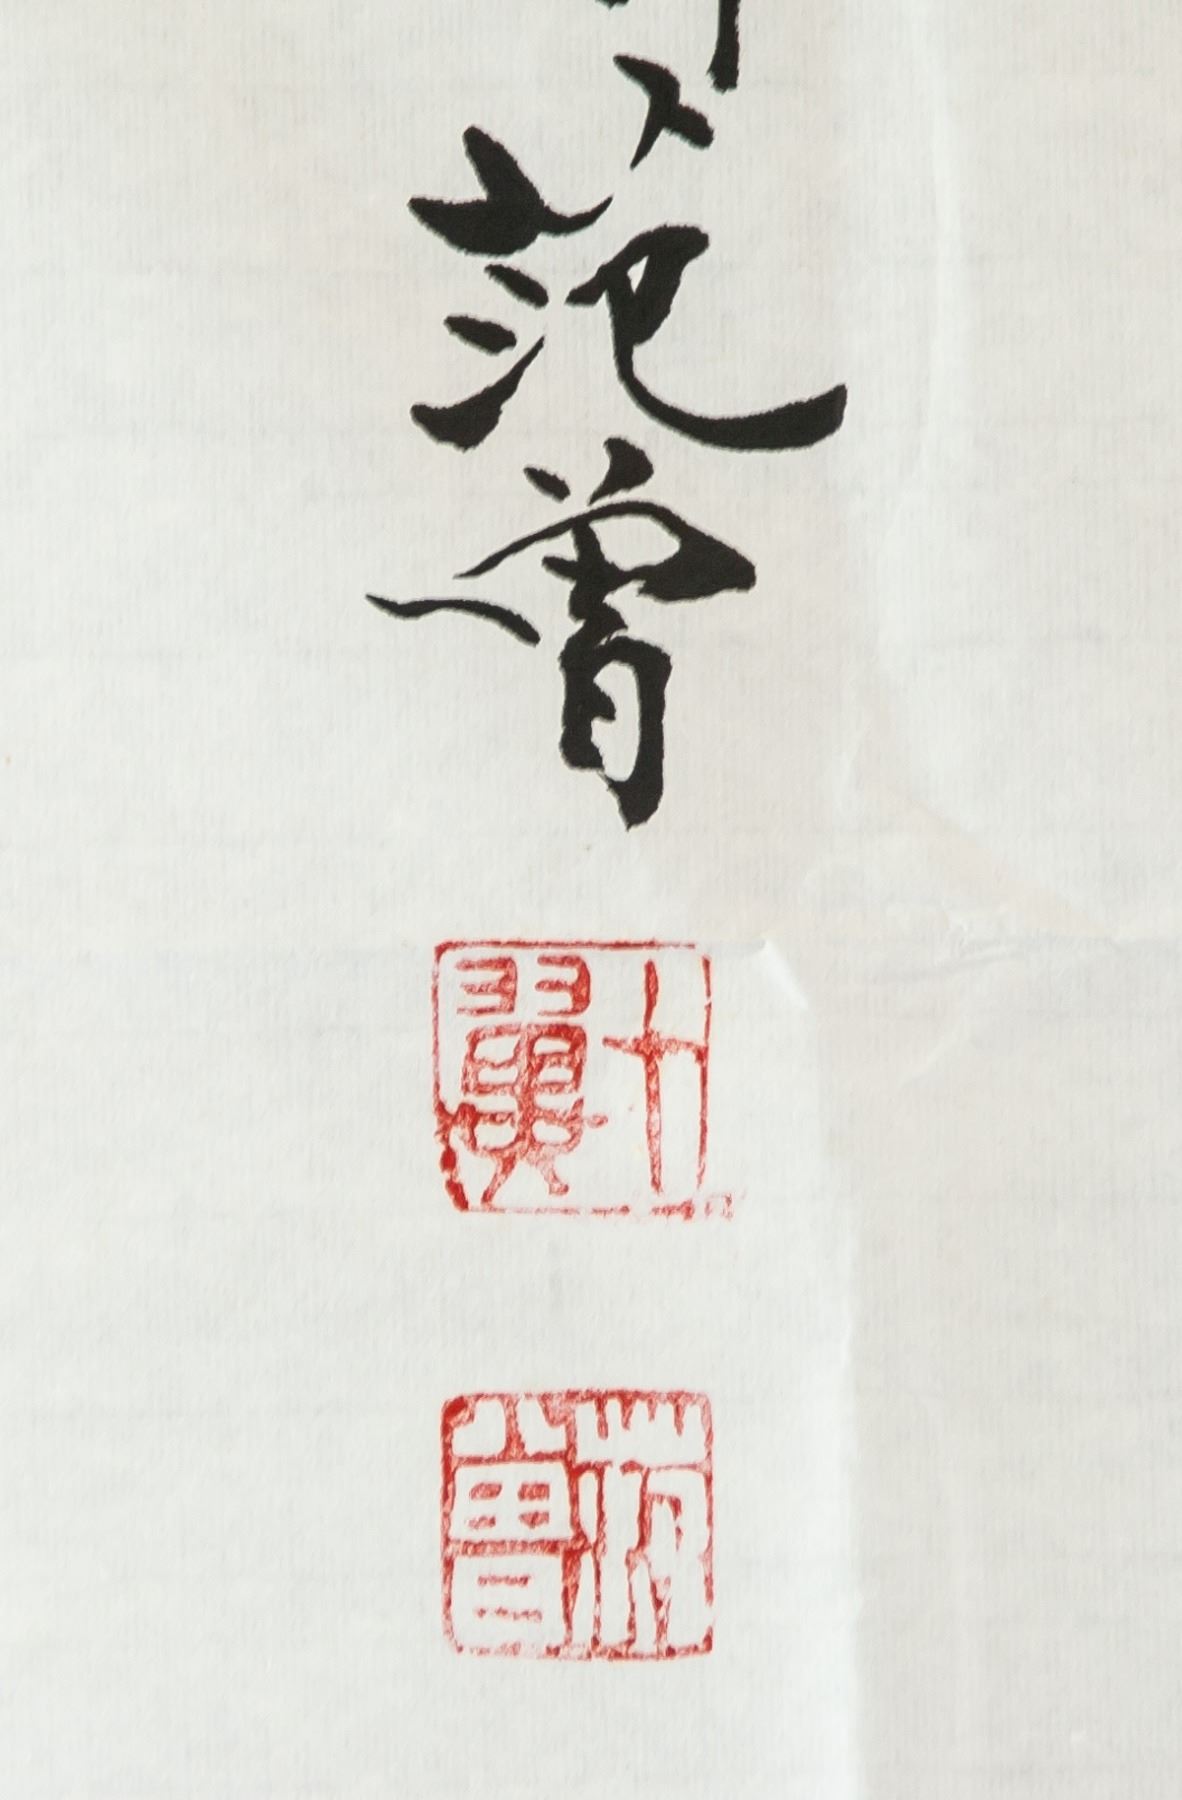 范曾
十翼
范曾